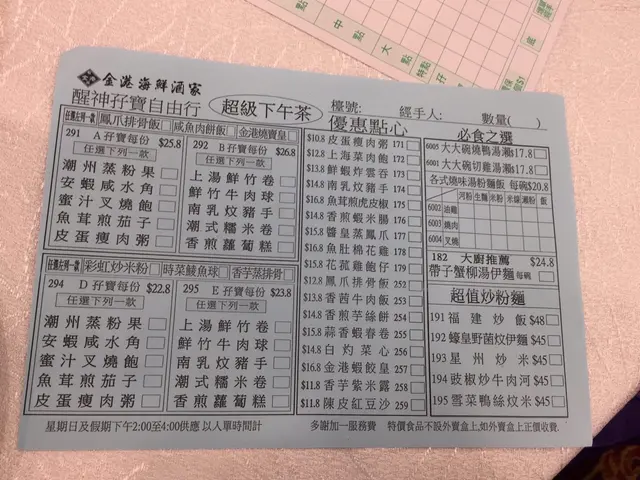 點
中
點
大
點
特點
底
金港海鮮酒家
醒神孖寶自由行
超級下午茶
檯號:
經手人:
數量( )
任選左列一款 鳳爪排骨飯 咸魚肉餅飯 金港燒賣皇
291 A孖寶每份 $25.8
任選下列一款
潮州蒸粉果
安蝦咸水角
蜜汁叉燒飽
魚茸煎茄子
皮蛋瘦肉粥
292 B孖寶每份 $26.8
任選下列一款
上湯鮮竹卷
鮮竹牛肉球
南乳炆豬手
潮式糯米卷
香煎蘿蔔糕
任選左列一款 彩虹炒米粉 時菜鯪魚球 香芋蒸排骨
294 D孖寶每份 $22.8
任選下列一款
潮州蒸粉果
安蝦咸水角
蜜汁叉燒飽
魚茸煎茄子
皮蛋瘦肉粥
295 E孖寶每份 $23.8
任選下列一款
上湯鮮竹卷
鮮竹牛肉球
南乳炆豬手
潮式糯米卷
香煎蘿蔔糕
優惠點心
$10.8 皮蛋瘦肉粥 171
$12.8 上海菜肉飽 172
$13.8 鮮蝦炸雲吞 173
$14.8 南乳炆豬手 174
$16.8 魚茸煎虎皮椒 175
$14.8 香煎蝦米腸 176
$15.8 醬皇蒸鳳爪 177
$16.8 魚肚棉花雞 178
$15.8 花菰雞飽仔 179
$12.8 鳳爪排骨飯 252
$13.8 香茜牛肉飯 253
$14.8 香煎芋絲餅 254
$15.8 蒜香蝦春卷 255
$14.8 白灼菜心 256
$16.8 金港蝦餃皇 257
$11.8 香芋紫米露 258
$11.8 陳皮紅豆沙 259
必食之選
6005 大大碗燒鴨湯瀨 $17.8
6001 大大碗切雞湯瀨 $17.8
各式燒味湯粉麵飯 每碗$20.8
河粉 生麵 米粉 米線 瀨粉 飯
6002 油雞
6003 燒肉
6004 叉燒
182 大廚推薦 $24.8
帶子蟹柳湯伊麵 每碗
超值炒粉麵
191 福建炒飯 $48
192 蠔皇野菌炆伊麵 $45
193 星州炒米 $45
194 豉椒炒牛肉河 $45
195 雪菜鴨絲炆米 $45
星期日及假期下午2:00至4:00供應 以人單時間計
多謝加一服務費
特價食品不設外賣盒上,如外賣盒上正價收費.